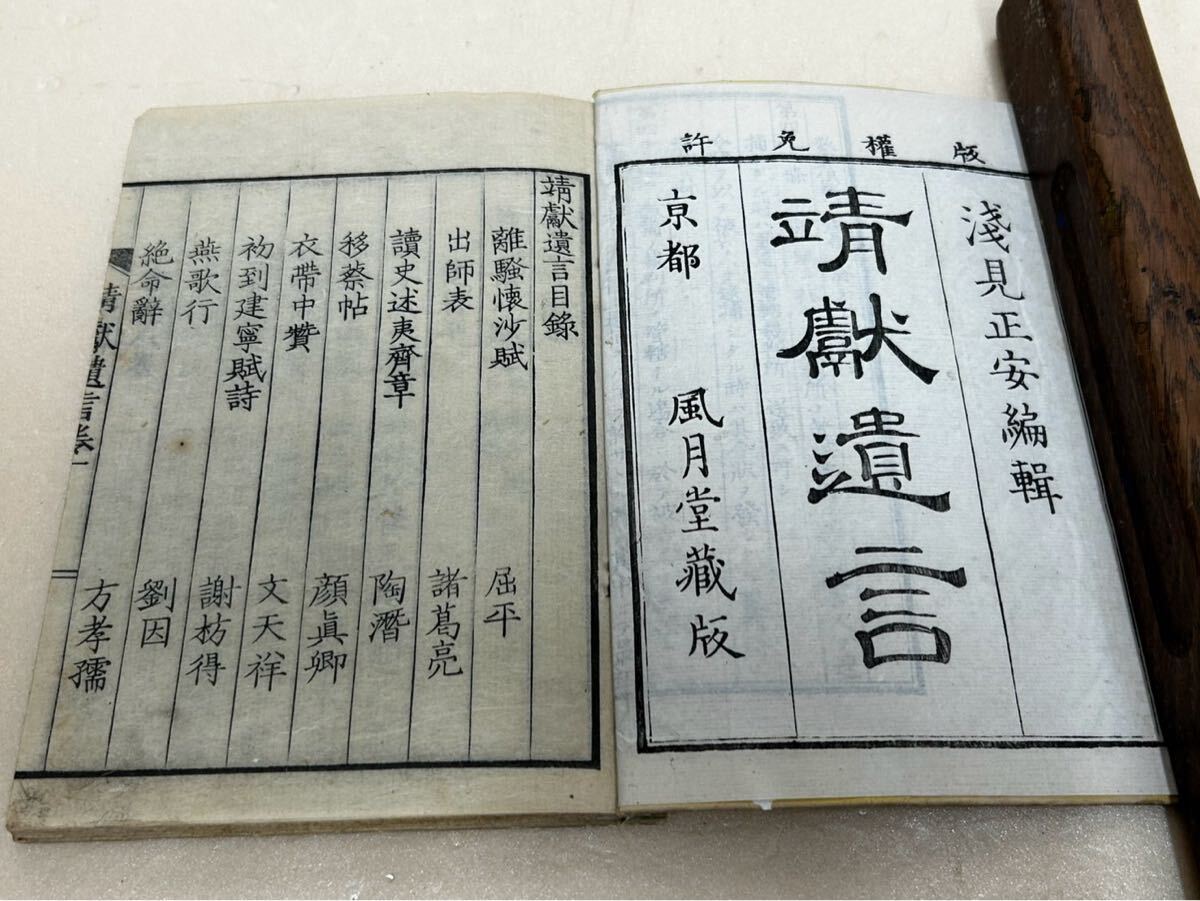 版權免許
淺見正安編輯
靖獻遺言
亰都 風月堂藏版
靖獻遺言目錄
離騷懷沙賦 屈平
出師表 諸葛亮
讀史述夷齊章 陶潛
移蔡帖 顏眞卿
衣帶中贊 文天祥
初到建寧賦詩 謝枋得
燕歌行 劉因
絶命辭 方孝孺
靖獻遺言卷一